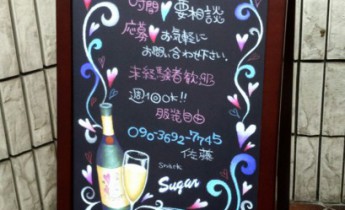 時間♥要相談
応募♥お気軽に
お問い合わせ下さい。
未経験者歓迎
週1日OK!!
服装自由
090-3692-7745
佐藤
snack
Sugar